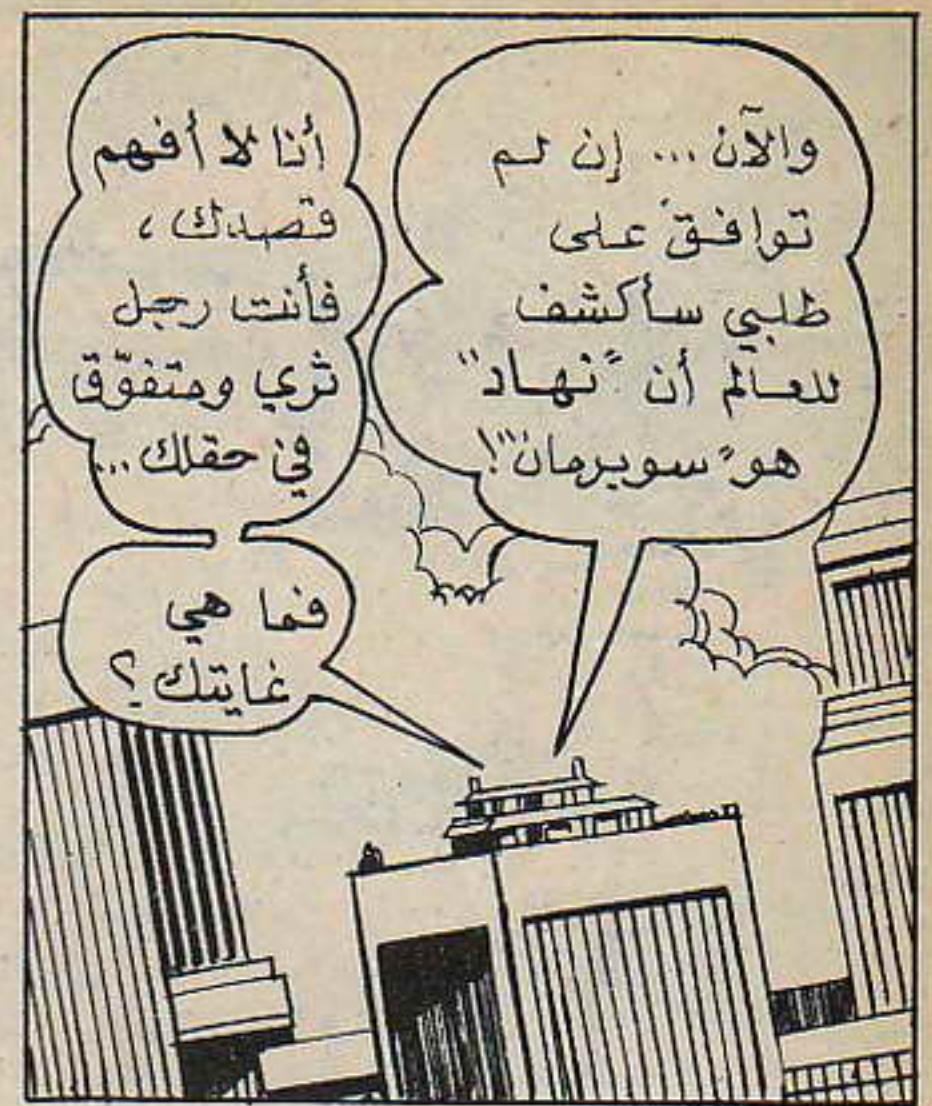 والآن... إن لم
توافق على
طلبي سأكشف
للعالم أن "نهاد"
هو "سوبرمان"!
أنا لا أفهم
قصدك،
فأنت رجل
ثري ومتفوّق
في حقلك...
فما هي
غايتك؟